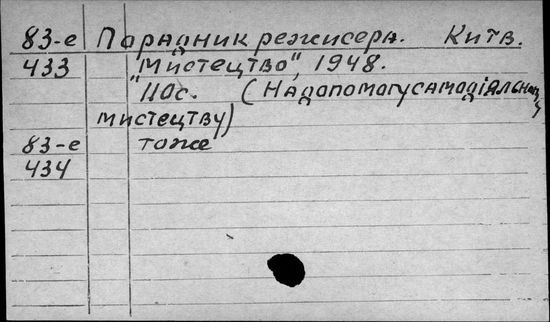 83-е Порадник режисера. Київ.
433 "Мистецтво", 1948.
110с. (На допомогу самодіяльному
мистецтву)
83-е тоже
434